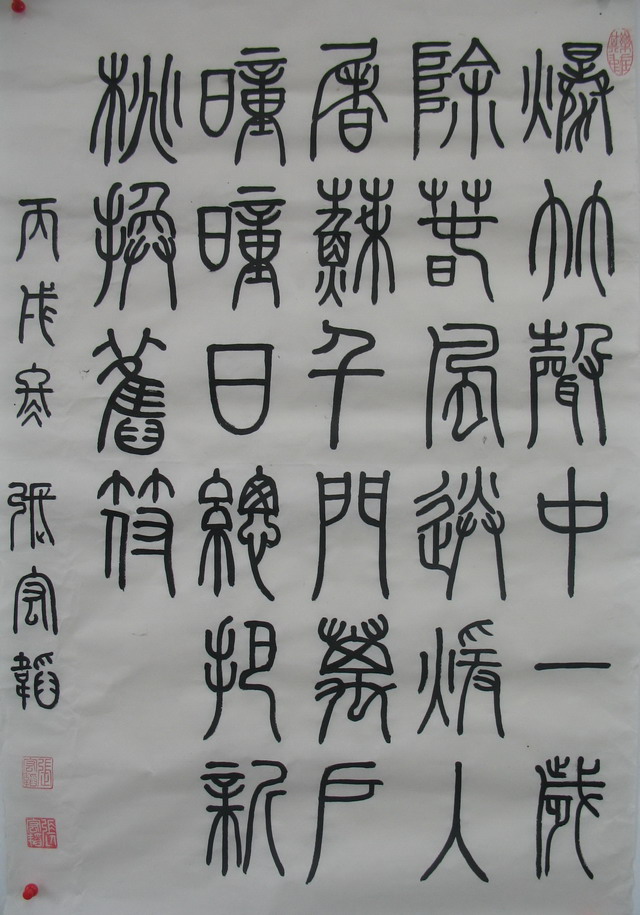 爆竹聲中一歲
除春風送暖入
屠蘇千門萬戶
曈曈日總把新
桃換舊符
丙戌冬 張宏韜